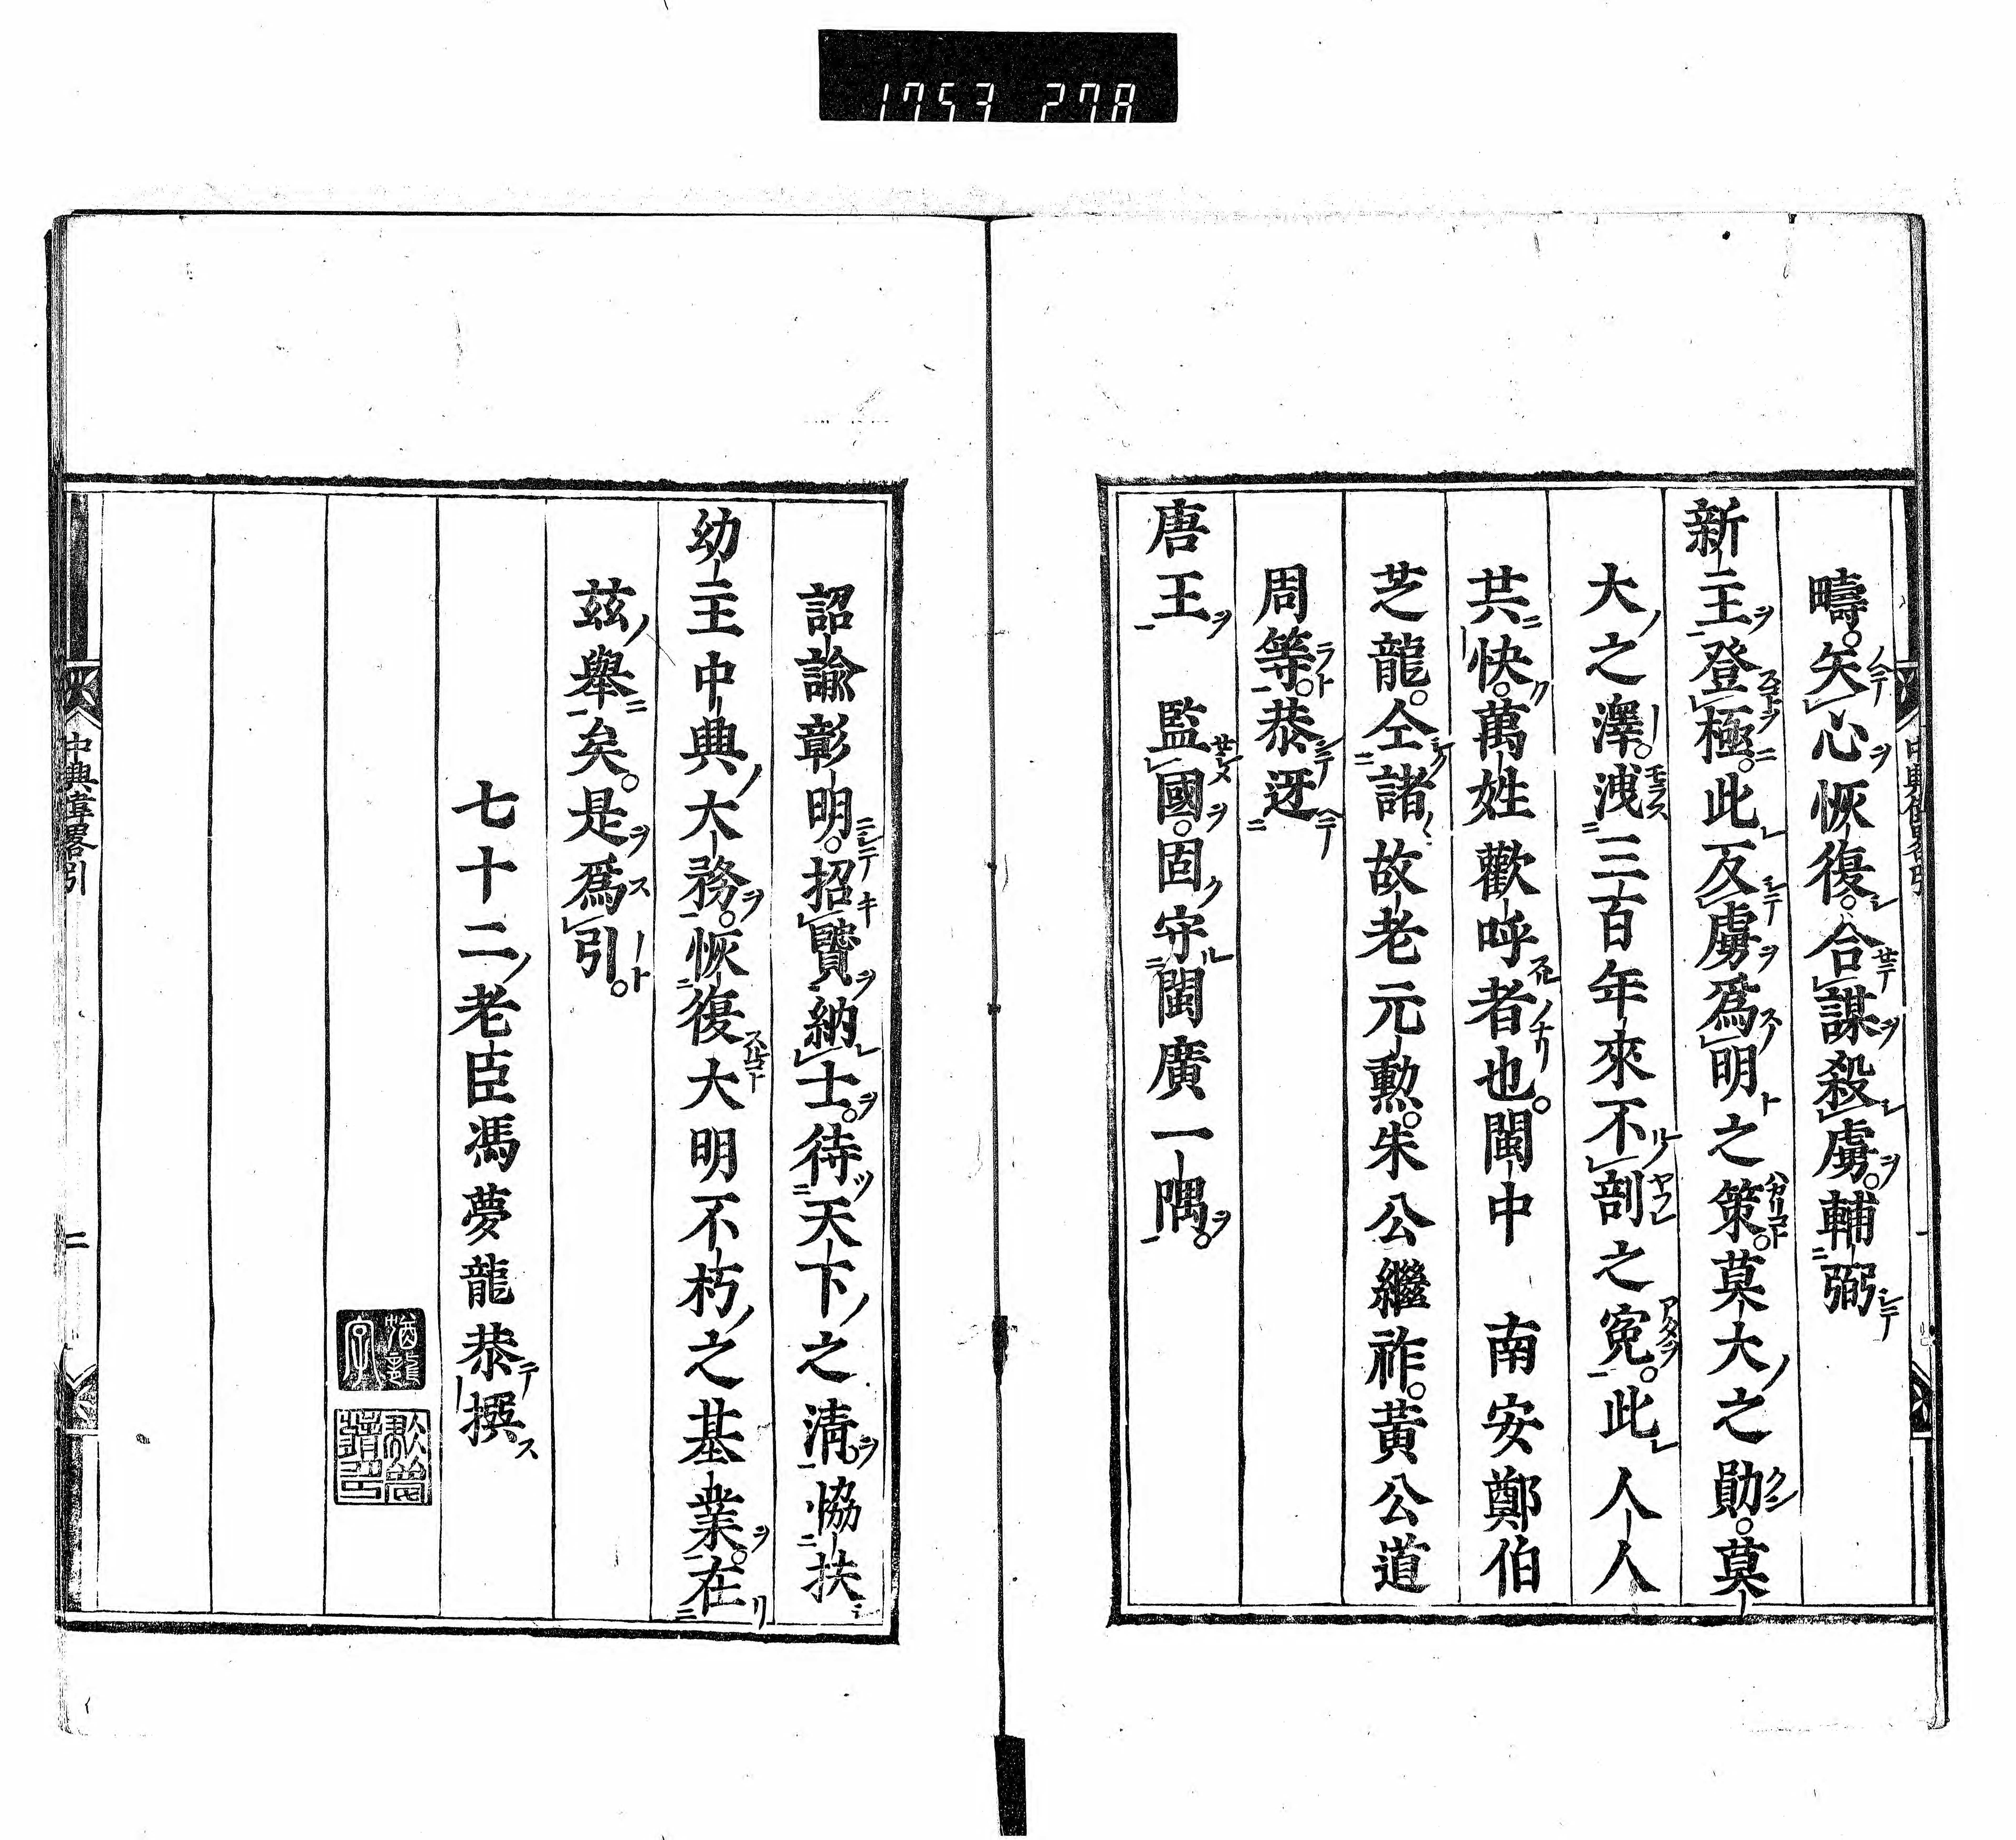 1753 27A
疇。矢心恢復。合謀殺虜。輔弼
新主登極。此反虜爲明之策。莫大之勛。莫
大之澤。洩三百年來不剖之寃。此人人
共快。萬姓歡呼者也。閩中 南安鄭伯
芝龍。仝諸故老元勲。朱公繼祚。黃公道
周等。恭迓
唐王 監國。固守閩廣一隅。
詔諭彰明。招賢納士。待天下之淸。協扶
幼主中興大務。恢復大明不朽之基業。在
玆舉矣。是爲引。
七十二老臣馮夢龍恭撰
猶龍
中興偉畧引
二